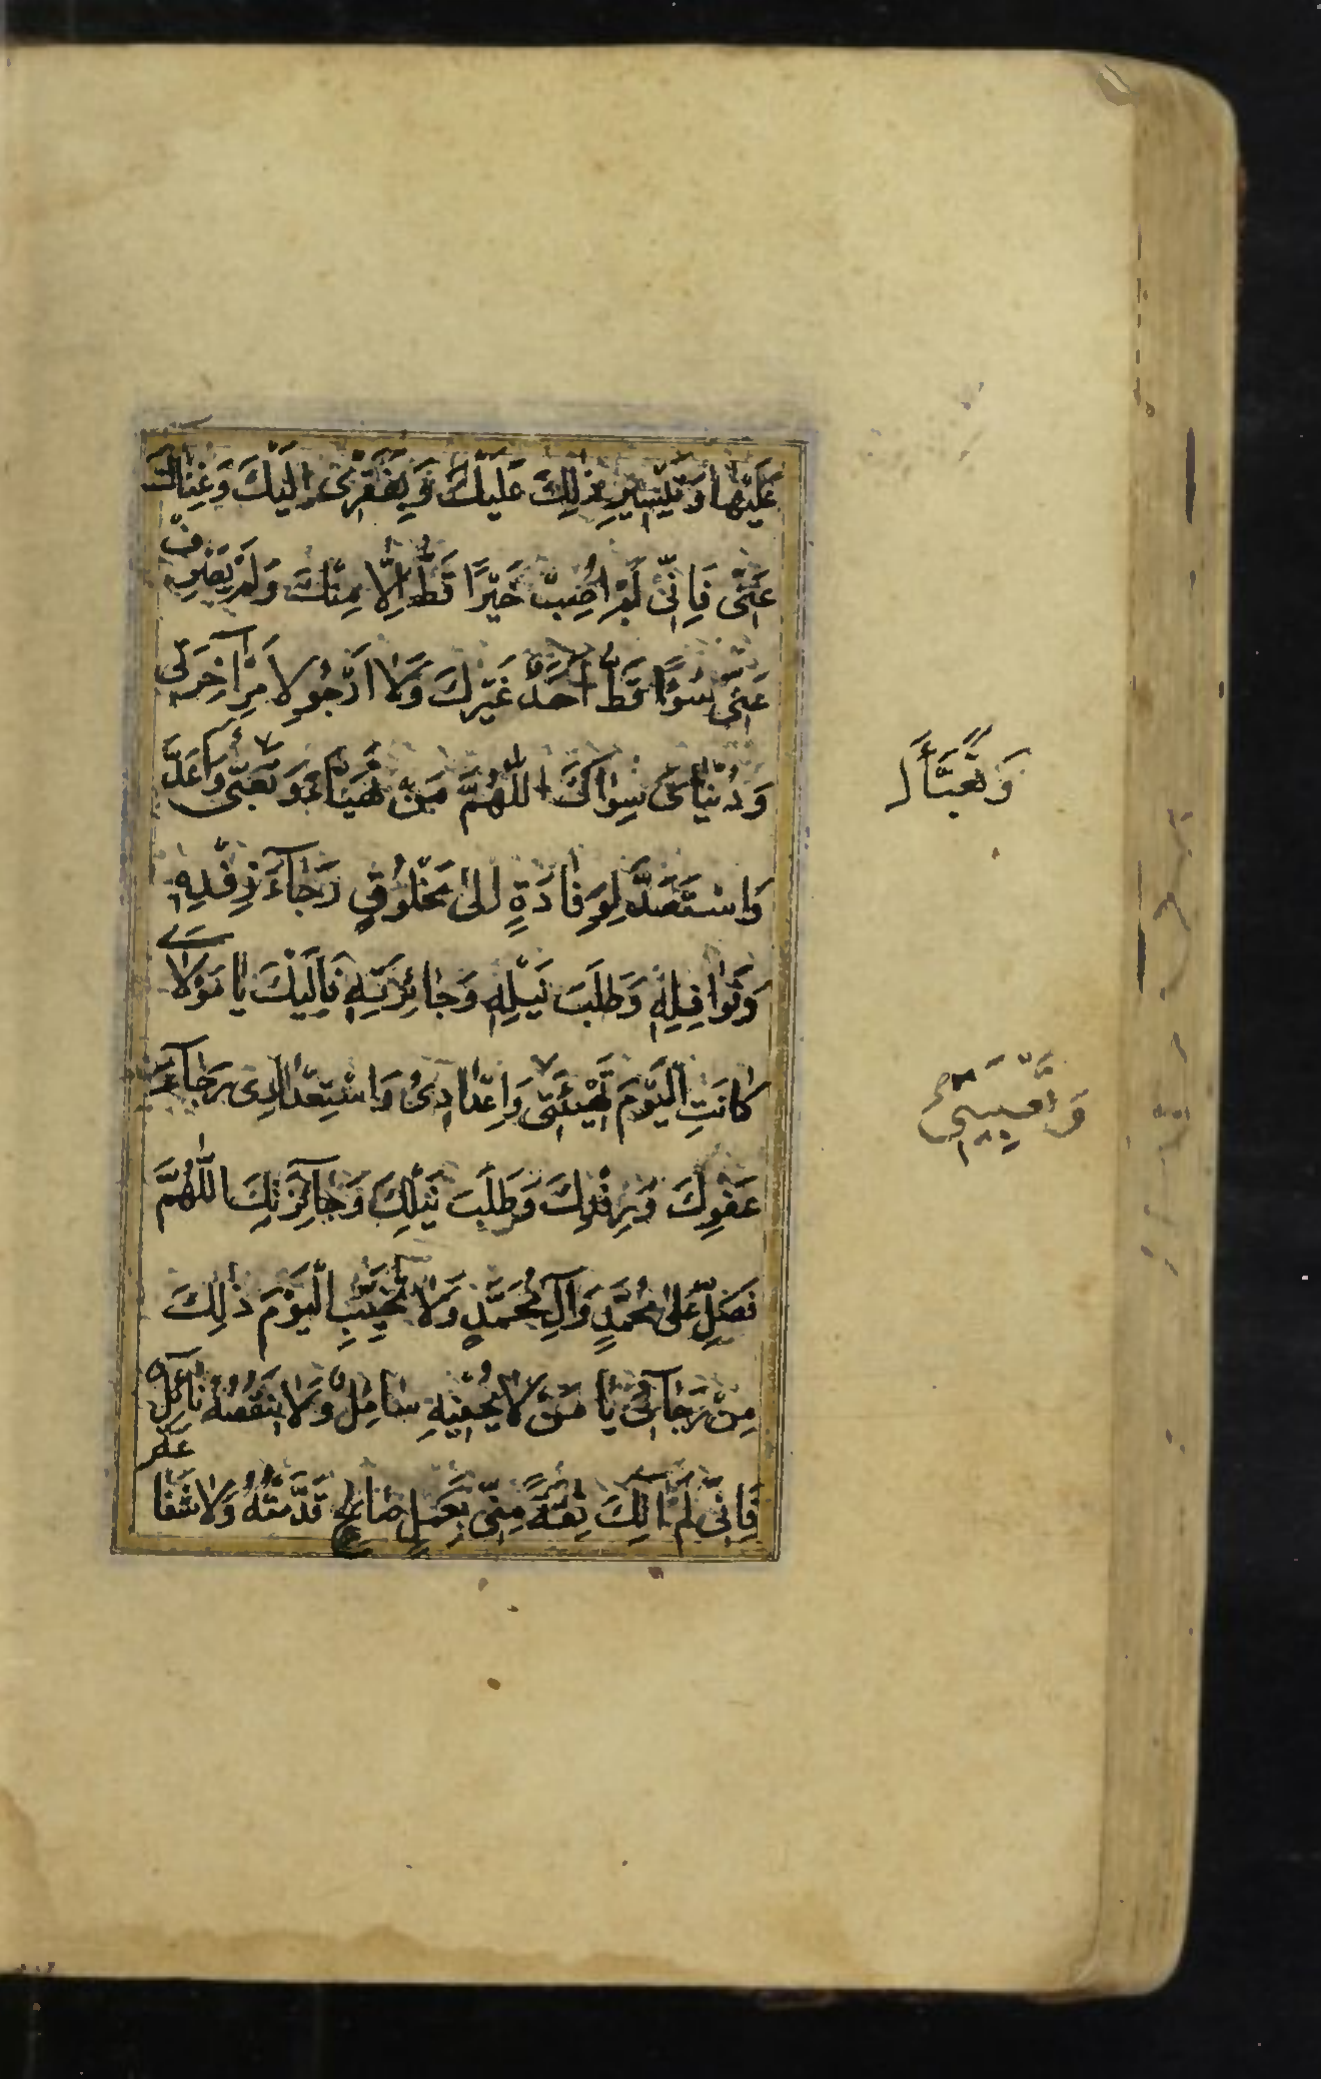 عَلَيْها وَتَيْسِيرِ ذٰلِكَ عَلَيْكَ وَبِفَقْرِى اِلَيْكَ وَغِناكَ
عَنّى فَاِنّى لَمْ اُصِبْ خَيْرًا قَطُّ اِلّا مِنْكَ وَلَمْ يَصْرِفْ
عَنّى سُوءًا قَطُّ اَحَدٌ غَيْرُكَ وَلا اَرْجُو لِاَمْرِ آخِرَتى
وَدُنْياىَ سِواكَ اَللّٰهُمَّ مَنْ تَهَيَّاَ وَتَعَبّى وَاَعَدَّ
وَاسْتَعَدَّ لِوِفادَةٍ اِلىٰ مَخْلُوقٍ رَجآءَ رِفْدِهِ
وَنَوافِلِهِ وَطَلَبَ نَيْلِهِ وَجائِزَتِهِ فَاِلَيْكَ يا مَوْلاىَ
كانَتِ الْيَوْمَ تَهْيِئَتى وَاِعْدادى وَاسْتِعْدادى رَجآءَ
عَفْوِكَ وَرِفْدِكَ وَطَلَبَ نَيْلِكَ وَجآئِزَتِكَ اَللّٰهُمَّ
فَصَلِّ عَلىٰ مُحَمَّدٍ وَآلِ مُحَمَّدٍ وَلا تُخَيِّبِ الْيَوْمَ ذٰلِكَ
مِنْ رَجآئى يا مَنْ لا يُحْفيهِ سائِلٌ وَلا يَنْقُصُهُ نآئِلٌ
فَاِنّى لَمْ آتِكَ ثِقَةً مِنّى بِعَمَلٍ صالِحٍ قَدَّمْتُهُ وَلا شَفا
عَةِ
وَتَعَبَّاَ
وَتَعْبِيَتى